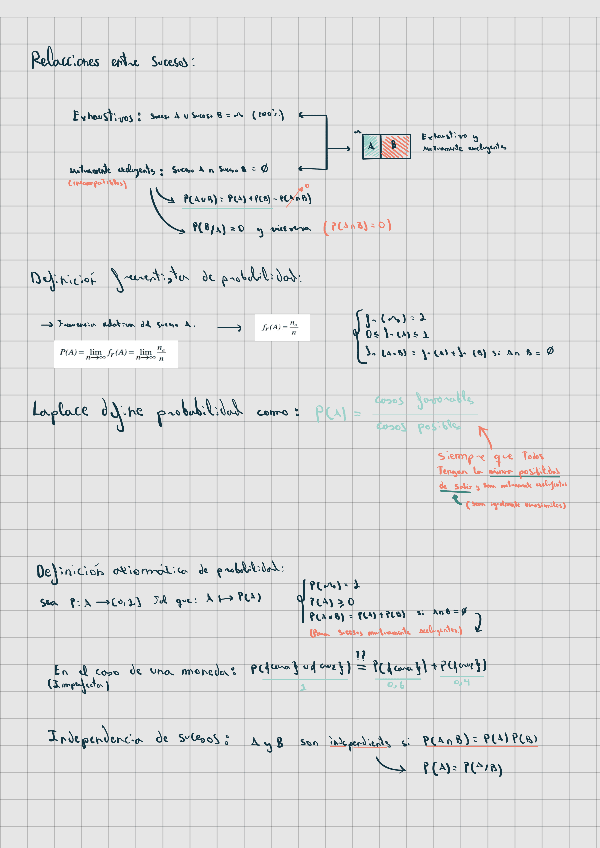 Relaciones entre sucesos:
Exhaustivos: Suceso A ∪ Suceso B = Ω (100%)
A B
Exhaustivo y
mutuamente excluyentes
mutuamente excluyentes: Suceso A ∩ Suceso B = Ø
(incompatibles)
P(A∪B) = P(A) + P(B) - P(A∩B) 0
P(B/A) = 0 y viceversa (P(A∩B) = 0)
Definición frecuentista de probabilidad:
→ Frecuencia relativa del suceso A. → f_r(A) = n_a / n
P(A) = lim n→∞ f_r(A) = lim n→∞ n_a / n
fr(Ω) = 1
0 ≤ fr(A) ≤ 1
fr(A∪B) = fr(A) + fr(B) si A∩B = Ø
Laplace define probabilidad como: P(A) = casos favorables / casos posibles
Siempre que Todos
Tengan la misma posibilidad
de salir y sean mutuamente excluyentes
(sean igualmente verosímiles)
Definición axiomática de probabilidad:
sea P: A → [0,1] Tal que: A ↦ P(A)
P(Ω) = 1
P(A) ≥ 0
P(A∪B) = P(A) + P(B) si A∩B = Ø
(Para sucesos mutuamente excluyentes)
En el caso de una moneda: P({cara} ∪ {cruz}) =?? P({cara}) + P({cruz})
(Imperfecta) 1 0,6 0,4
Independencia de sucesos: A y B son independiente si P(A∩B) = P(A) P(B)
P(A) = P(A/B)